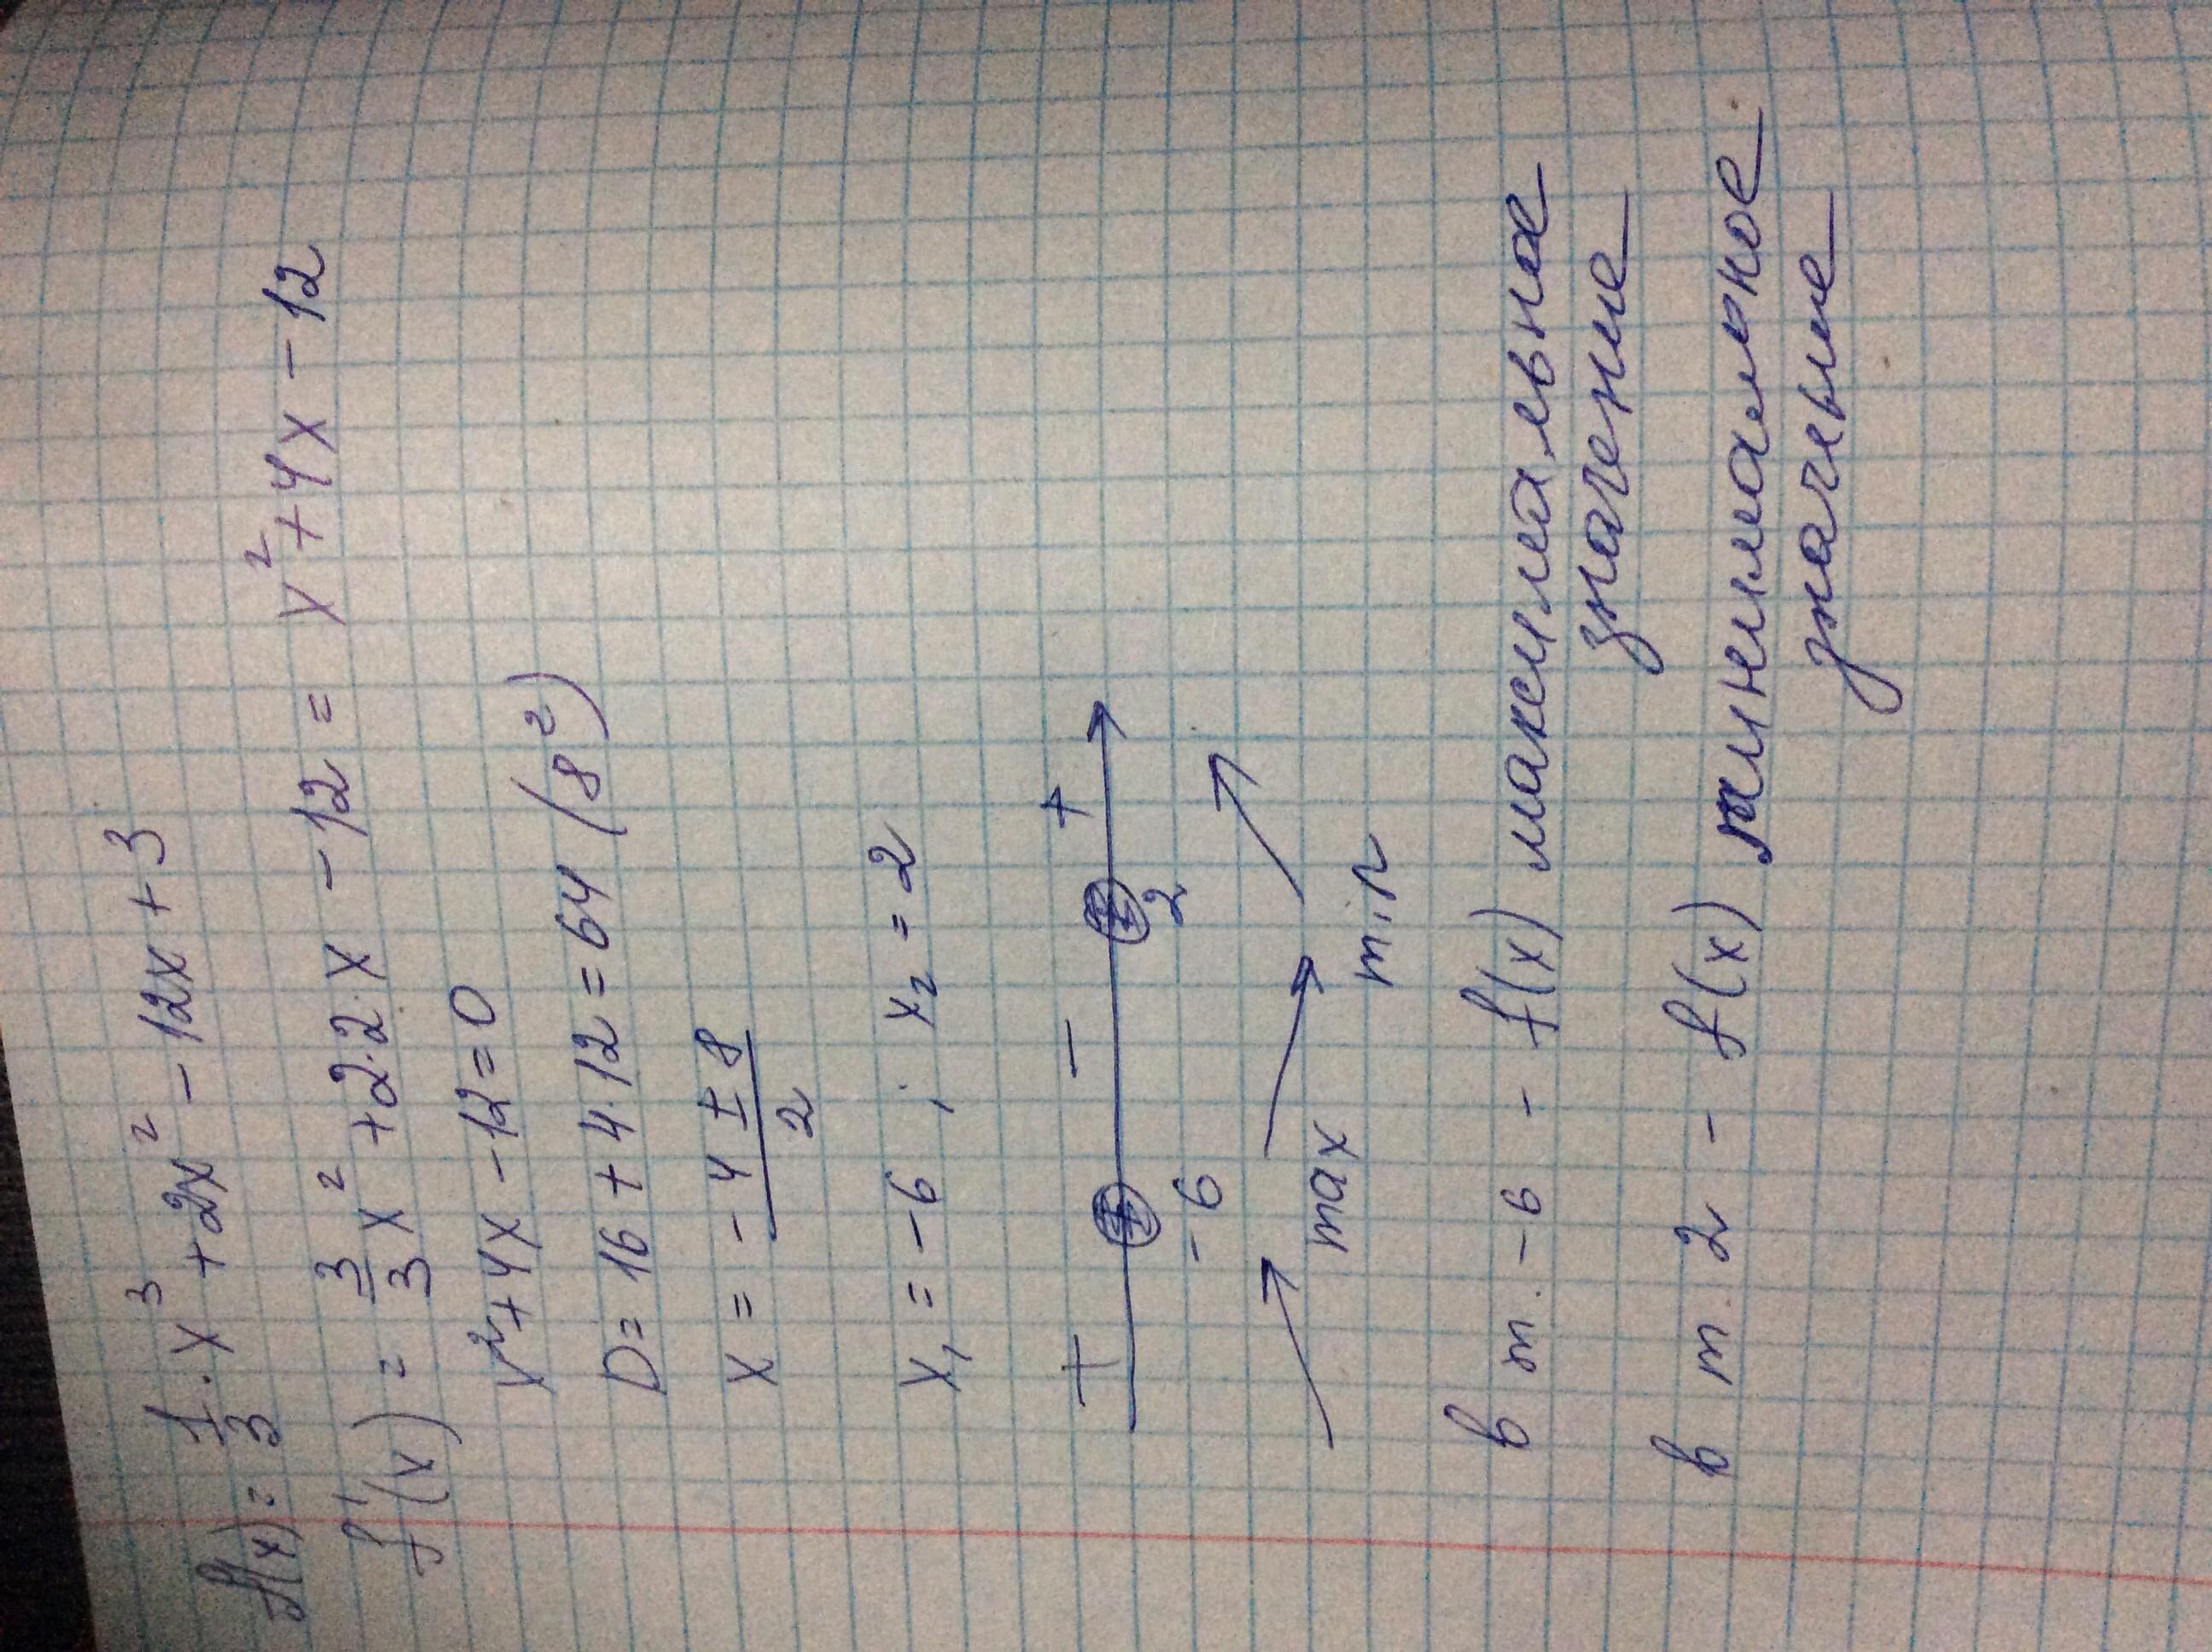 f(x) = 1/3 · x³ + 2x² - 12x + 3
f'(x) = 3/3 x² + 2·2·x - 12 = x² + 4x - 12
x² + 4x - 12 = 0
D = 16 + 4·12 = 64 (8²)
x = (-4 ± 8)/2
x₁ = -6 ; x₂ = 2
+ - +
-6 2
max min
в т. -6 - f(x) максимальное
значение
в т. 2 - f(x) минимальное
значение